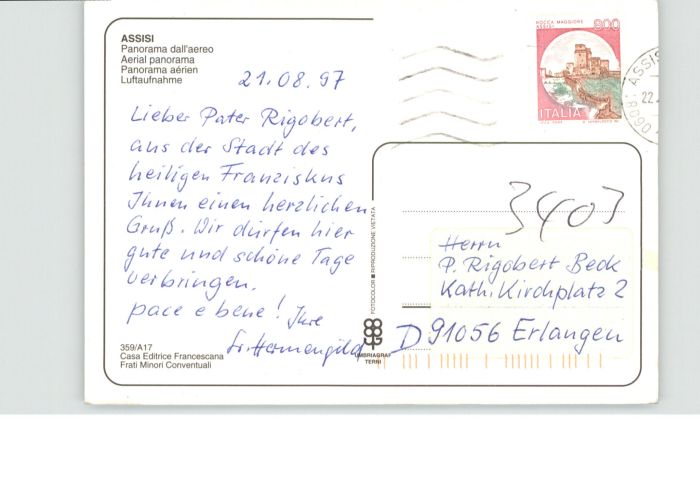 ASSISI
Panorama dall'aereo
Aerial panorama
Panorama aérien
Luftaufnahme
21.08.97
Lieber Pater Rigobert,
aus der Stadt des
heiligen Franziskus
Ihnen einen herzlichen
Gruß. Wir dürfen hier
gute und schöne Tage
verbringen.
pace e bene! Ihre
Sr. Hermengild
359/A17
Casa Editrice Francescana
Frati Minori Conventuali
FOTOCOLOR ■ RIPRODUZIONE VIETATA
UMBRIAGRAF
TERNI
ROCCA MAGGIORE
ASSISI
800
ITALIA
ASSIS
22.
06081
3403
Herrn
P. Rigobert Beck
Kath. Kirchplatz 2
D 91056 Erlangen